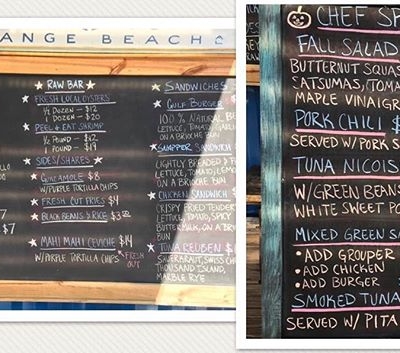 ANGE BEACH
RAW BAR
FRESH LOCAL OYSTERS
½ DOZEN - $12
1 DOZEN - $20
PEEL & EAT SHRIMP
½ POUND - $12
1 POUND - $19
SIDES/SHARES
GUACAMOLE $8
W/PURPLE TORTILLA CHIPS
FRESH CUT FRIES $4
BLACK BEANS & RICE $3
MAHI MAHI CEVICHE $14
W/PURPLE TORTILLA CHIPS
FRESH OUT
$7
SANDWICHES
GULF BURGER
100% NATURAL BE
LETTUCE, TOMATO,
ON A BRIOCHE BUN
SNAPPER SANDWICH
LIGHTLY BREADED &
LETTUCE, TOMATO, LEMO
ON A BRIOCHE BUN
CHICKEN SANDWICH
CRISPY FRIED TENDER
LETTUCE, TOMATO, SPICY
BUTTERMILK, ON A BR
BUN
TUNA REUBEN $1
SAUERKRAUT, SWISS CH
THOUSAND ISLAND,
MARBLE RYE
CHEF SP
FALL SALAD
BUTTERNUT SQUAS
SATSUMAS, TOMA
MAPLE VINAIGR
PORK CHILI $
SERVED W/PORK S
TUNA NICOIS
W/GREEN BEANS
WHITE SWEET PO
MIXED GREEN SA
• ADD GROUPER
• ADD CHICKEN
• ADD BURGER $
SMOKED TUNA
SERVED W/ PITA